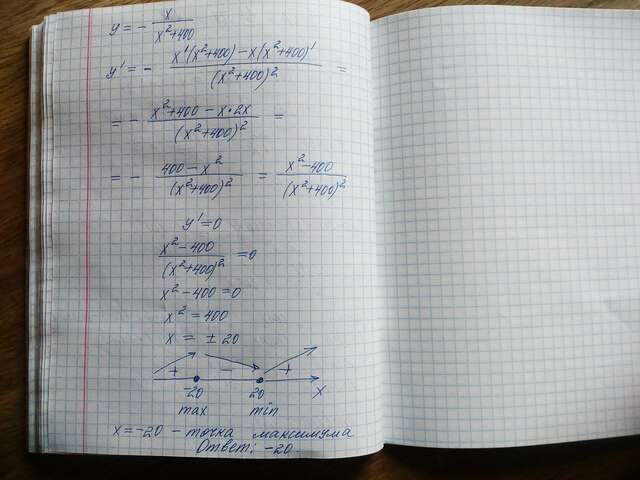 y = - x / (x²+400)
y' = - (x'(x²+400) - x(x²+400)') / (x²+400)² =
= - (x²+400 - x·2x) / (x²+400)² =
= - (400-x²) / (x²+400)² = (x²-400) / (x²+400)²
y'=0
(x²-400) / (x²+400)² =0
x²-400=0
x²=400
x = ±20
+ - +
-20 20 x
max min
x=-20 - точка максимума
Ответ: -20.